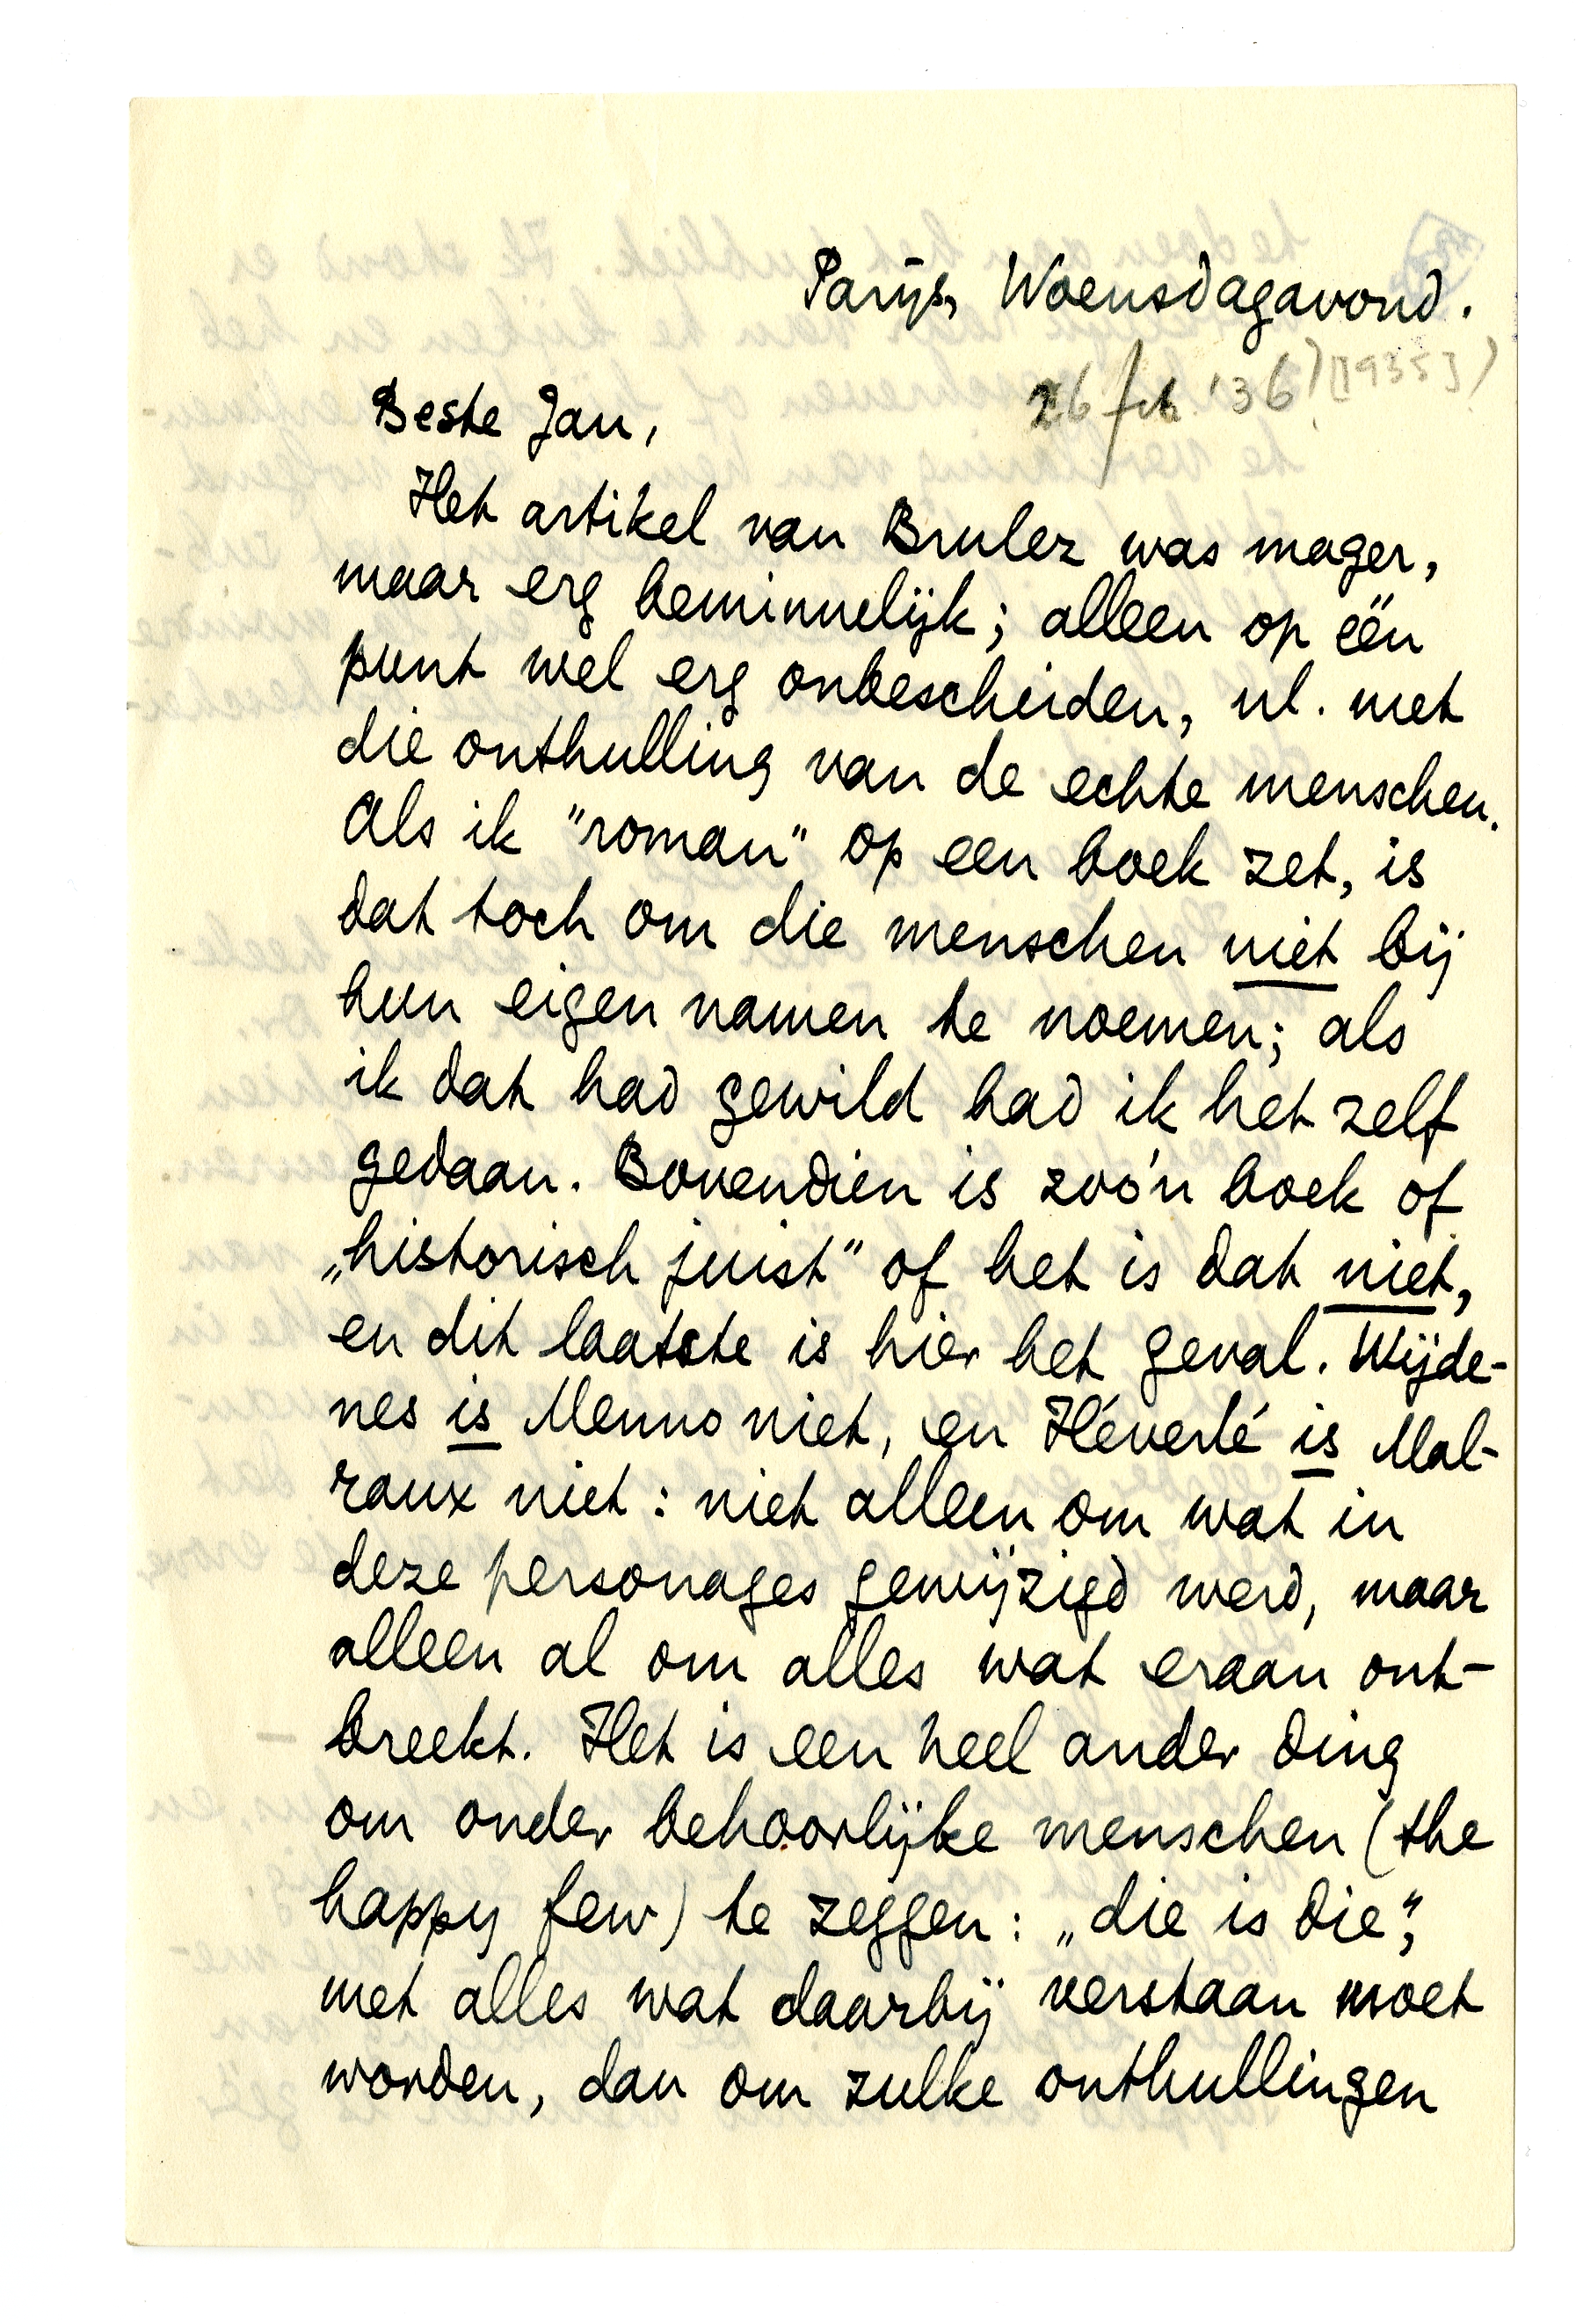 Parijs, Woensdagavond.
26 feb. '36 ) ([1935])
Beste Jan,
Het artikel van Brulez was mager,
maar erg beminnelijk; alleen op één
punt wel erg onbescheiden, nl. met
die onthulling van de echte menschen.
Als ik "roman" op een boek zet, is
dat toch om die menschen niet bij
hun eigen namen te noemen; als
ik dat had gewild had ik het zelf
gedaan. Bovendien is zoo'n boek of
„historisch juist" of het is dat niet,
en dit laatste is hier het geval. Wijde-
nes is Menno niet, en Héverlé is Mal-
raux niet: niet alleen om wat in
deze personages gewijzigd werd, maar
alleen al om alles wat eraan ont-
breekt. Het is een heel ander ding
om onder behoorlijke menschen (the
happy few) te zeggen: „die is die",
met alles wat daarbij verstaan moet
worden, dan om zulke onthullingen